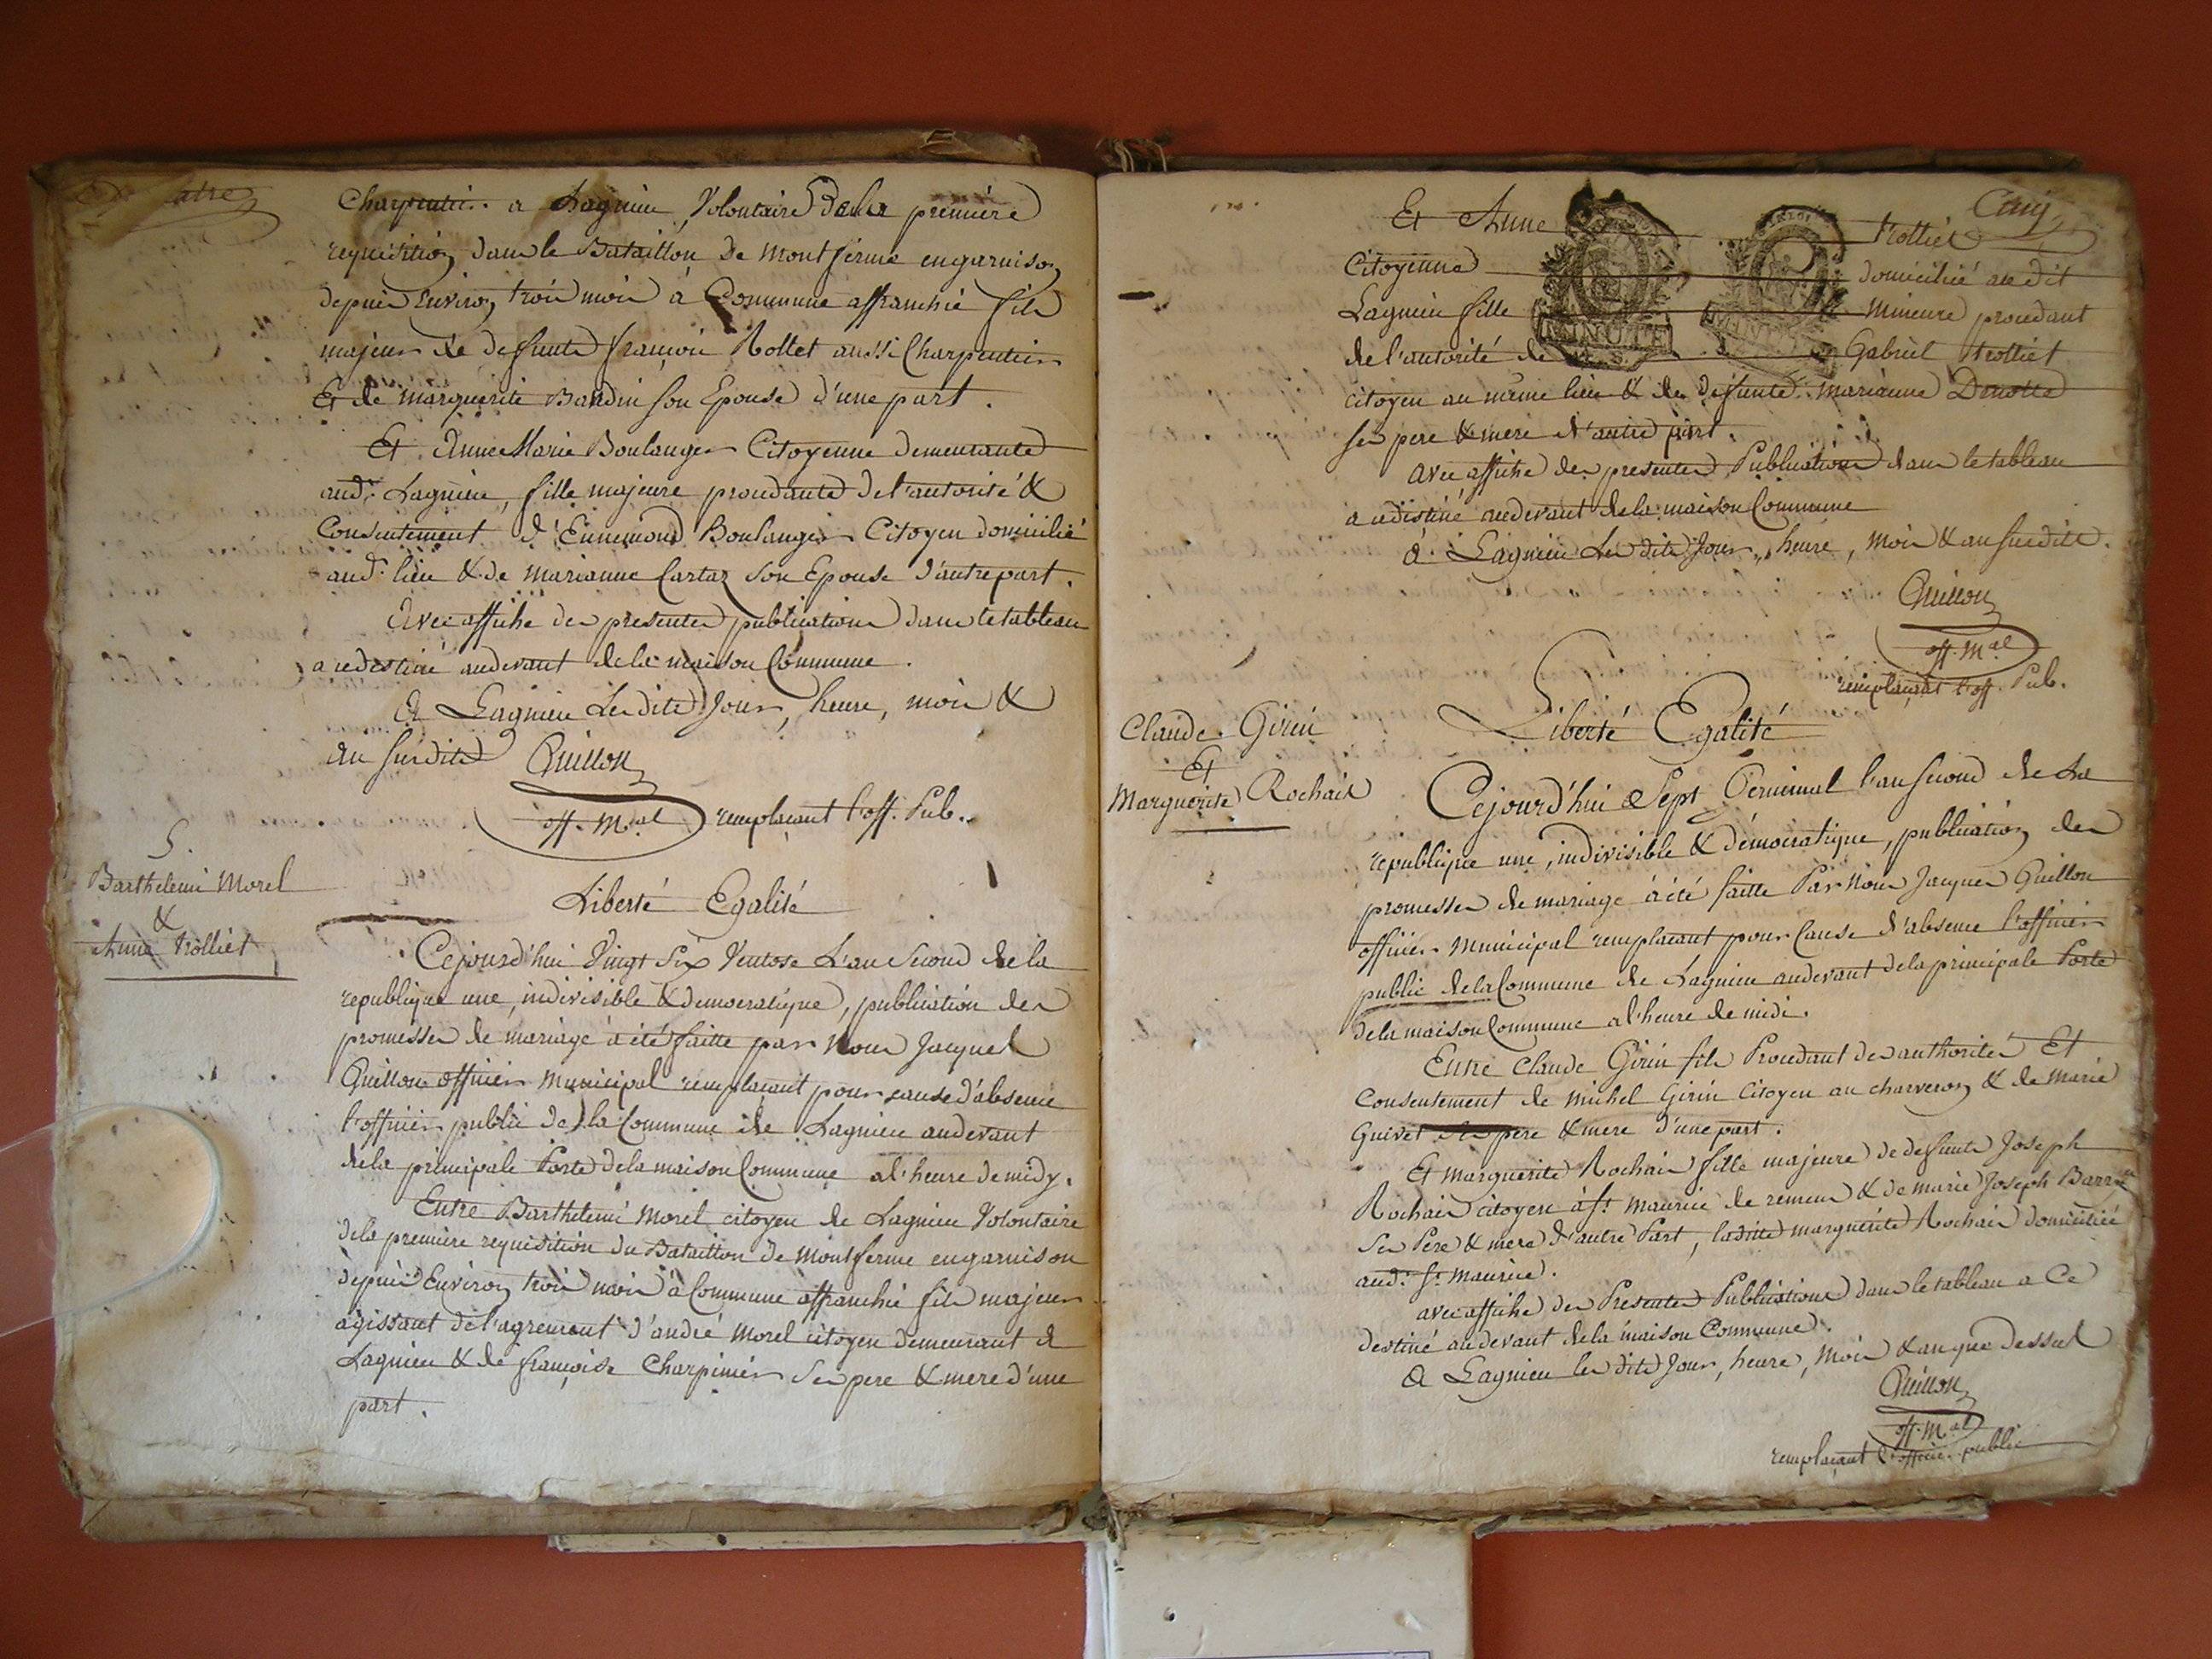 Charpentier a Lagnieu, Volontaire De la première
requisition dans le Bataillon De Montferme en garnison
depuis Environ trois mois à Commune affranchie fils
majeur de defunts françois Rollet aussi Charpentier
Et de Marguerite Baudin son Epouse d'une part.
Et Anne Marie Boulanger Citoyenne demeurante
aud.t Lagnieu, fille majeure procedante de l'autorité &
Consentement d'Ennemond Boulanger Citoyen domicilié
aud.t lieu & de marianne Cartaz son Epouse d'autre part.
Avec affiche des presentes publications dans le tableau
a ce destiné audevant de la maison Commune.
A Lagnieu Lesdits Jour, heure, mois &
an susdits Guillon
off. M.al remplaçant l'off. Pub.
5.
Barthelemi Morel
&
Anne trolliet
Liberté Egalité
Cejourd'hui Vingt Six Ventose L'an Second de la
republique une, indivisible & democratique, publication des
promesses de mariage a été faitte par Nous Jacques
Guillon officier Municipal remplaçant pour cause d'absence
l'officier public de la Commune de Lagnieu audevant
de la principale Porte de la maison Commune a l'heure de midy.
Entre Barthelemi Morel citoyen de Lagnieu Volontaire
de la première requisition du Bataillon de Montferme en garnison
depuis Environ trois mois à Commune affranchie fils majeur
agissant de l'agrement d'andré Morel citoyen demeurant a
Lagnieu & de françoise Charpinier Ses pere & mere d'une
part.
Cinq
Et Anne trolliet
Citoyenne domiciliée audit
Lagnieu fille Mineure procedant
de l'autorité de Gabriel trolliet
citoyen au même lieu & de defunte Marianne Denotte
ses pere & mere d'autre part.
avec affiche des presentes Publications dans le tableau
a ce destiné audevant de la maison Commune
à Lagnieu Lesdits Jour, heure, mois & an susdits.
Guillon
off. M.al
remplaçant l'off. Pub.
Claude Girin
Et
Marguerite Rochais
Liberté Egalité
Cejourd'hui Sept Germinal l'an second de La
republique une, indivisible & démocratique, publication des
promesses de mariage a été faitte Par Nous Jacques Guillon
officier Municipal remplacant pour Cause d'absence l'officier
public de la Commune de Lagnieu audevant de la principale Porte
de la maison Commune a l'heure de midi.
Entre Claude Girin fils Procedant des authorités Et
Consentement de Michel Girin Citoyen au charveron & de Marie
Guivet pere & mere d'une part.
Et Marguerite Rochais fille majeure de defunts Joseph
Rochais citoyen à S.t Maurice de remens & de marie Joseph
Ses Pere & mere d'autre Part, laditte marguerite Rochais domiciliée
aud.t S.t Maurice.
avec affiche des Presentes Publications dans le tableau a Ce
destiné audevant de la maison Commune.
A Lagnieu lesdits Jour, heure, mois & an que dessus
Guillon
off. M.al
remplaçant l'officier public
MINUTE